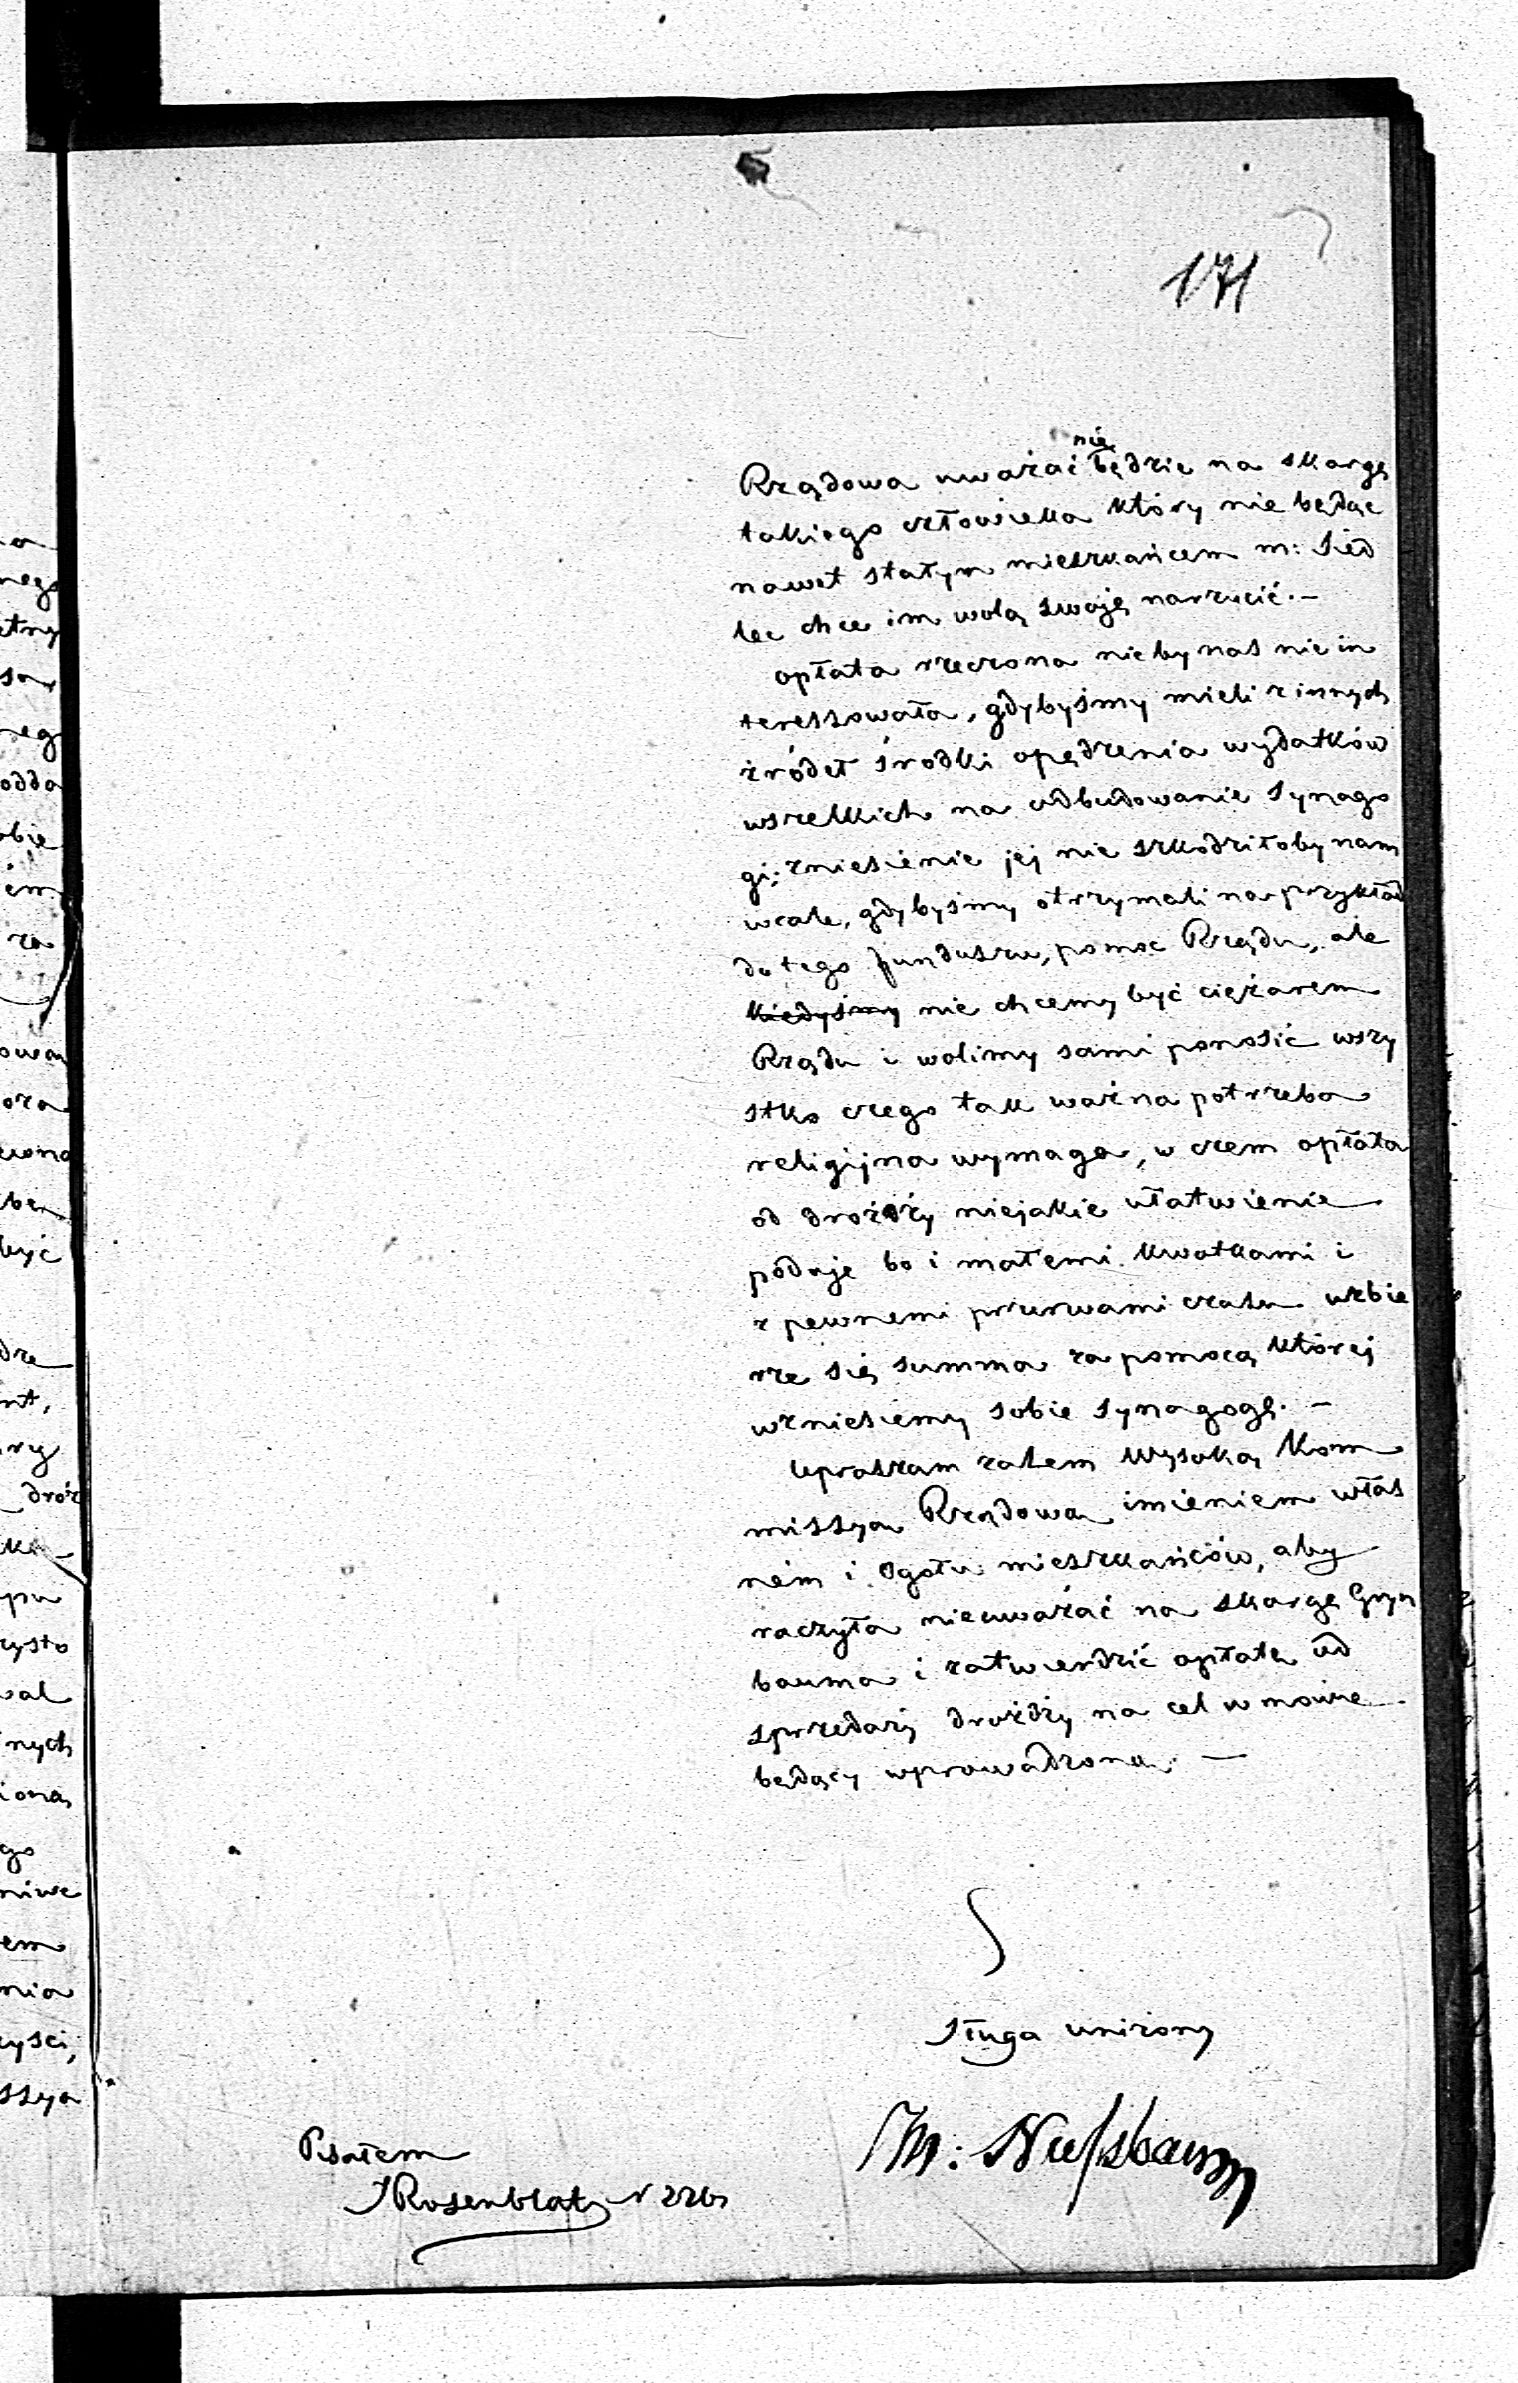 171
Rządowa uważać nie będzie na skargę
takiego człowieka który nie będąc
nawet stałym mieszkańcem m: Sied
lec chce im wolą swoję narzucić. —
opłata rzeczona nieby nas nie in
teressowała, gdybyśmy mieli z innych
źródeł środki opędzenia wydatków
wszelkich na odbudowanie synago
gi; zniesienie jej nie szkodziłoby nam
wcale, gdybyśmy otrzymali na przykład
do tego funduszu, pomoc Rządu, ale
kiedyśmy nie chcemy być ciężarem
Rządu i wolimy sami ponosić wszy
stko czego tak ważna potrzeba
religijna wymaga, w czem opłata
od drożdży niejakie ułatwienie
podaje bo i małemi kwotkami i
z pewnemi przerwami czasu uzbie
rze się summa za pomocą której
wzniesiemy sobie synagogę. —
Upraszam zatem Wysoką Kom
missya Rządowa imieniem włas
nem i ogółu mieszkańców, aby
raczyła nieuważać na skargę Gryn
bauma i zatwierdzić opłatę od
sprzedaży drożdży na cel w mowie
będący wprowadzoną. —
Sługa uniżony
M: Nussbaum
Pisałem
J Rosenblat N 226